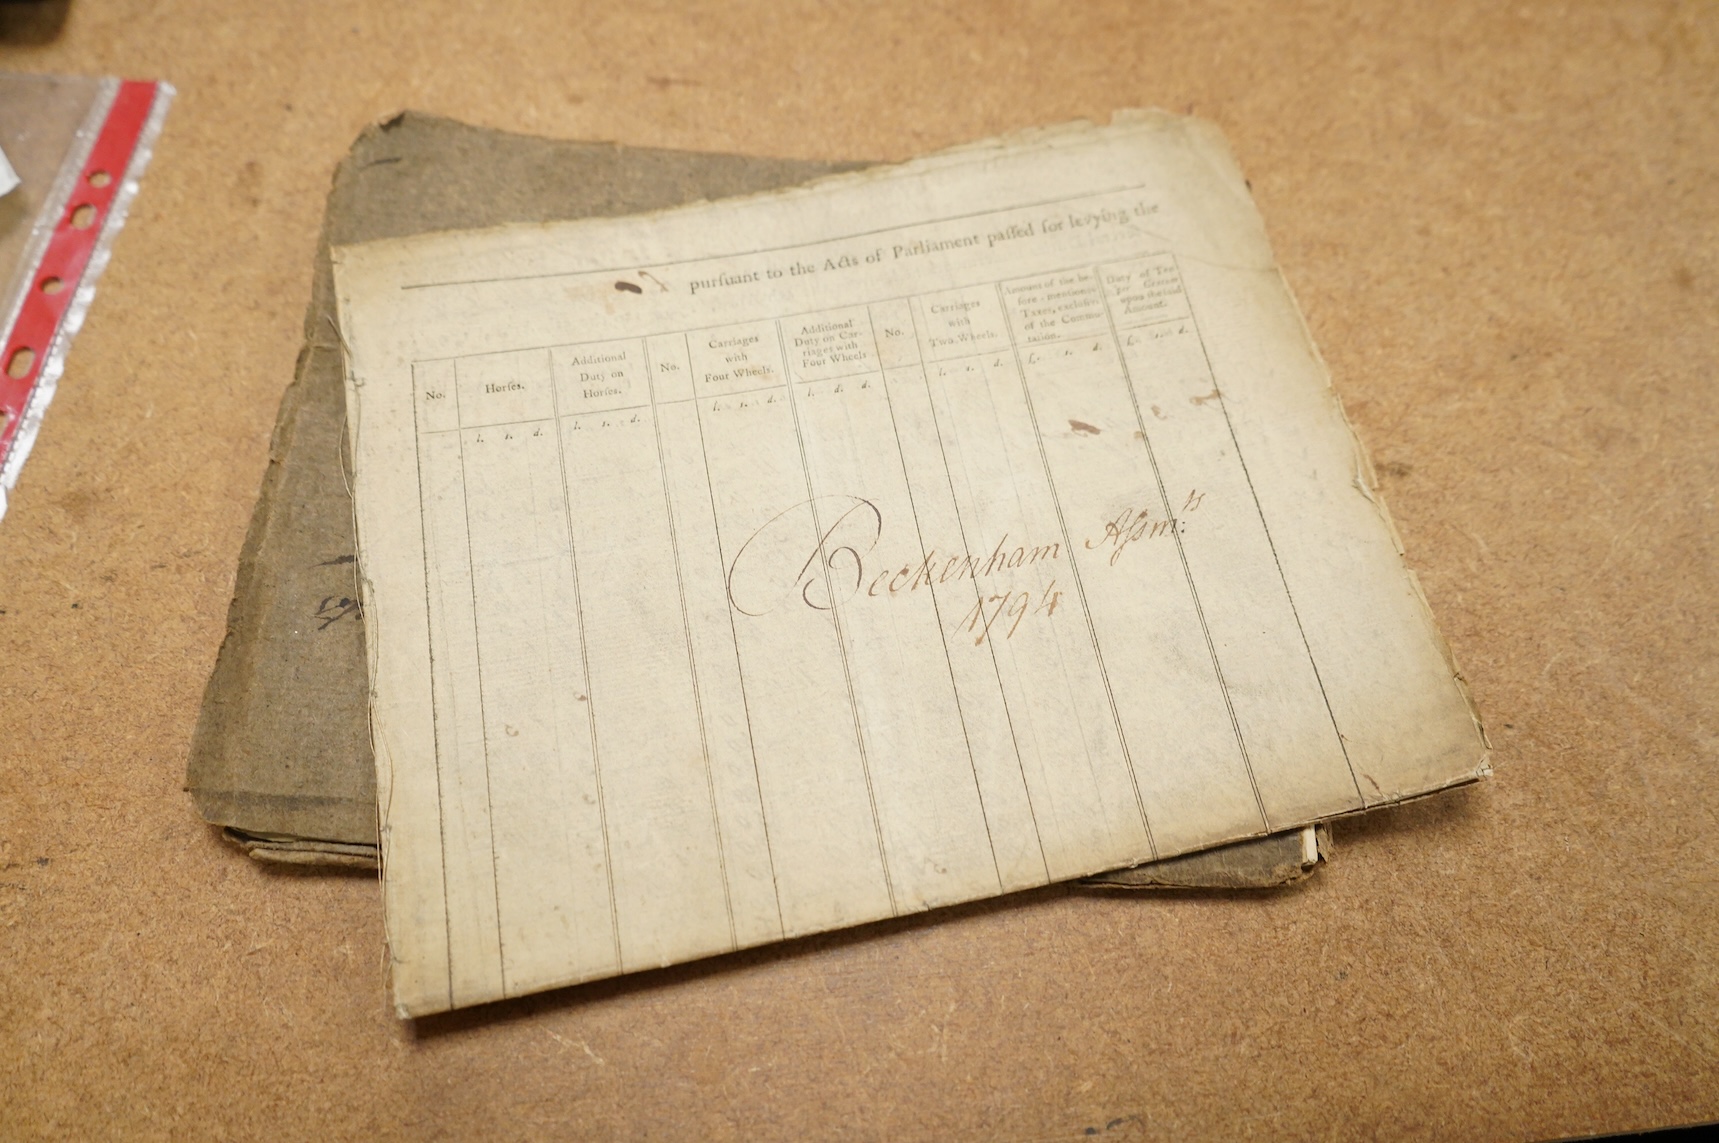 purſuant to the Acts of Parliament paſſed for levying the
No.
Horſes.
Additional
Duty on
Horſes.
No.
Carriages
with
Four Wheels.
Additional
Duty on Car-
riages with
Four Wheels
No.
Carriages
with
Two Wheels.
Amount of the be-
fore-mentioned
Taxes, excluſive
of the Commu-
tation.
Duty of Ten
per Centum
upon the ſaid
Amount.
l. s. d.
l. s. d.
l. s. d.
l. d. d.
l. s. d.
£. s. d.
£. s. d.
Beckenham Aſsm:ts
1794